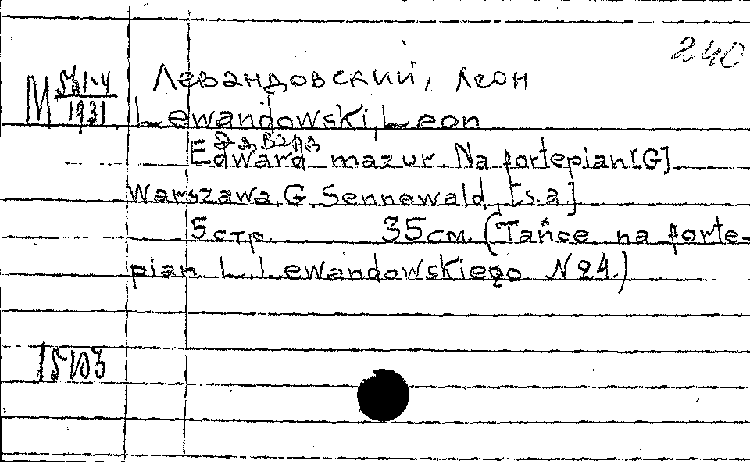 240
М 581-4
1931
Левандовский, Леон
Lewandowski, Leon
Эдвард
Edward mazur. Na fortepian[G]
Warszawa, G. Sennewald, [s.a]
5 стр. 35 см. (Tańce na forte-
pian L. Lewandowskiego N 24.)